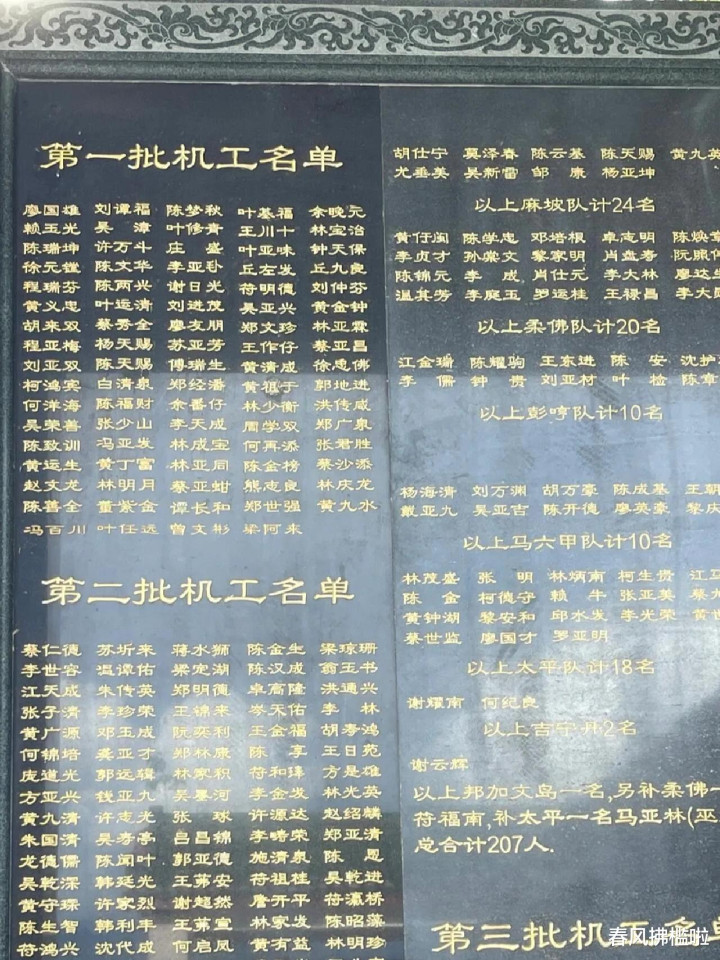 第一批机工名单
廖国雄 刘谭福 陈梦秋 叶基福 余晚元
赖玉光 吴漳 叶修青 王川十 林宝治
陈瑞坤 许万斗 庄盛 叶亚味 钟天保
徐元镗 陈文华 李亚卦 丘左发 丘九良
程瑞芬 陈两兴 谢日光 符明德 刘仲芬
黄义忠 叶运清 刘进茂 吴亚兴 黄金钟
胡来双 蔡秀全 廖友朋 郑文珍 林亚霖
程亚梅 杨天赐 苏亚芳 王作仔 蔡亚昌
刘亚双 陈天赐 傅瑞生 黄清成 徐忠佛
柯鸿宾 白清泉 郑经潘 黄祖于 郭地进
何洋海 陈福财 余番仔 林少衡 洪传咸
吴荣善 张少山 李天成 周学双 郑广泉
陈致训 冯亚发 林成宝 何再添 张君胜
黄运生 黄丁富 林亚同 陈金榜 蔡沙添
赵文龙 林明月 蔡亚蚶 熊志良 林庆龙
陈善全 董紫金 谭长和 郑世强 黄九水
冯百川 叶任远 曾文彬 梁阿来
第二批机工名单
蔡仁德 苏圻来 蒋水狮 陈金生 梁琼珊
李世容 温谭佑 梁定湖 陈汉成 翁玉书
江天成 朱传英 郑明德 卓高隆 洪通兴
张子清 李珍荣 王锦来 岑天佑 李林
黄广源 邓玉成 阮奕利 王金福 胡寿鸿
何锦培 龚亚才 郑林康 陈享 王日苑
庞道光 郭远辑 林家积 符和璋 方是雄
方亚兴 钱亚九 吴墨河 李金发 林光英
黄九清 许志光 张球 许源达 赵绍麟
朱国清 吴寿亭 吕昌锦 李畴荣 郑亚清
龙德儒 陈闻叶 郭亚德 施清泉 陈恩
吴乾深 韩廷光 王茀安 符祖桂 吴乾进
黄守琛 许家烈 谢超然 詹开平 符瀛桥
陈生智 韩利丰 王茀宣 林家发 陈昭藻
符鸿兴 沈代成 何启凤 黄有益 林明珍
胡仕宁 莫泽春 陈云基 陈天赐 黄九英
尤垂美 吴新雷 邹康 杨亚坤
以上麻坡队计24名
黄仔闽 陈学忠 邓培根 卓志明 陈焕
李贞才 孙棠文 黎家明 肖盘寿 阮照
陈锦元 李成 肖仕元 李大林 廖达
温其芳 李庭玉 罗运桂 王禄昌 李大
以上柔佛队计20名
江金瑞 陈耀驹 王东进 陈安 沈护
李儒 钟贵 刘亚材 叶检 陈章
以上彭哼队计10名
杨海清 刘万渊 胡万豪 陈成基 王朝
戴亚九 吴亚吉 陈开德 廖英豪 黎庆
以上马六甲队计10名
林茂盛 张明 林炳南 柯生贵 江
陈金 柯德守 赖牛 张亚美 蔡
黄钟湖 黎安和 邱水发 李光荣 黄世
蔡世监 廖国才 罗亚明
以上太平队计18名
谢耀南 何纪良
以上吉宁丹2名
谢云辉
以上邦加文岛一名,另补柔佛一
符福南,补太平一名马亚林(巫
总合计207人.
第三批机工名单
春风拂槛啦